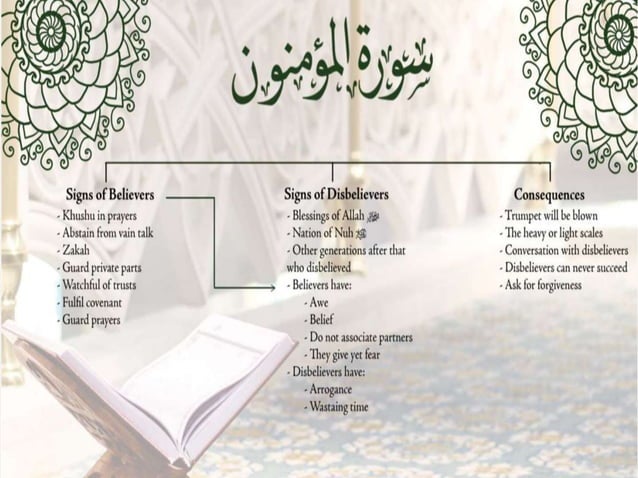 سورة المؤمنون
Signs of Believers
- Khushu in prayers
- Abstain from vain talk
- Zakah
- Guard private parts
- Watchful of trusts
- Fulfil covenant
- Guard prayers
Signs of Disbelievers
- Blessings of Allah
- Nation of Nuh
- Other generations after that
who disbelieved
- Believers have:
- Awe
- Belief
- Do not associate partners
- They give yet fear
- Disbelievers have:
- Arrogance
- Wastaing time
Consequences
- Trumpet will be blown
- The heavy or light scales
- Conversation with disbelievers
- Disbelievers can never succeed
- Ask for forgiveness